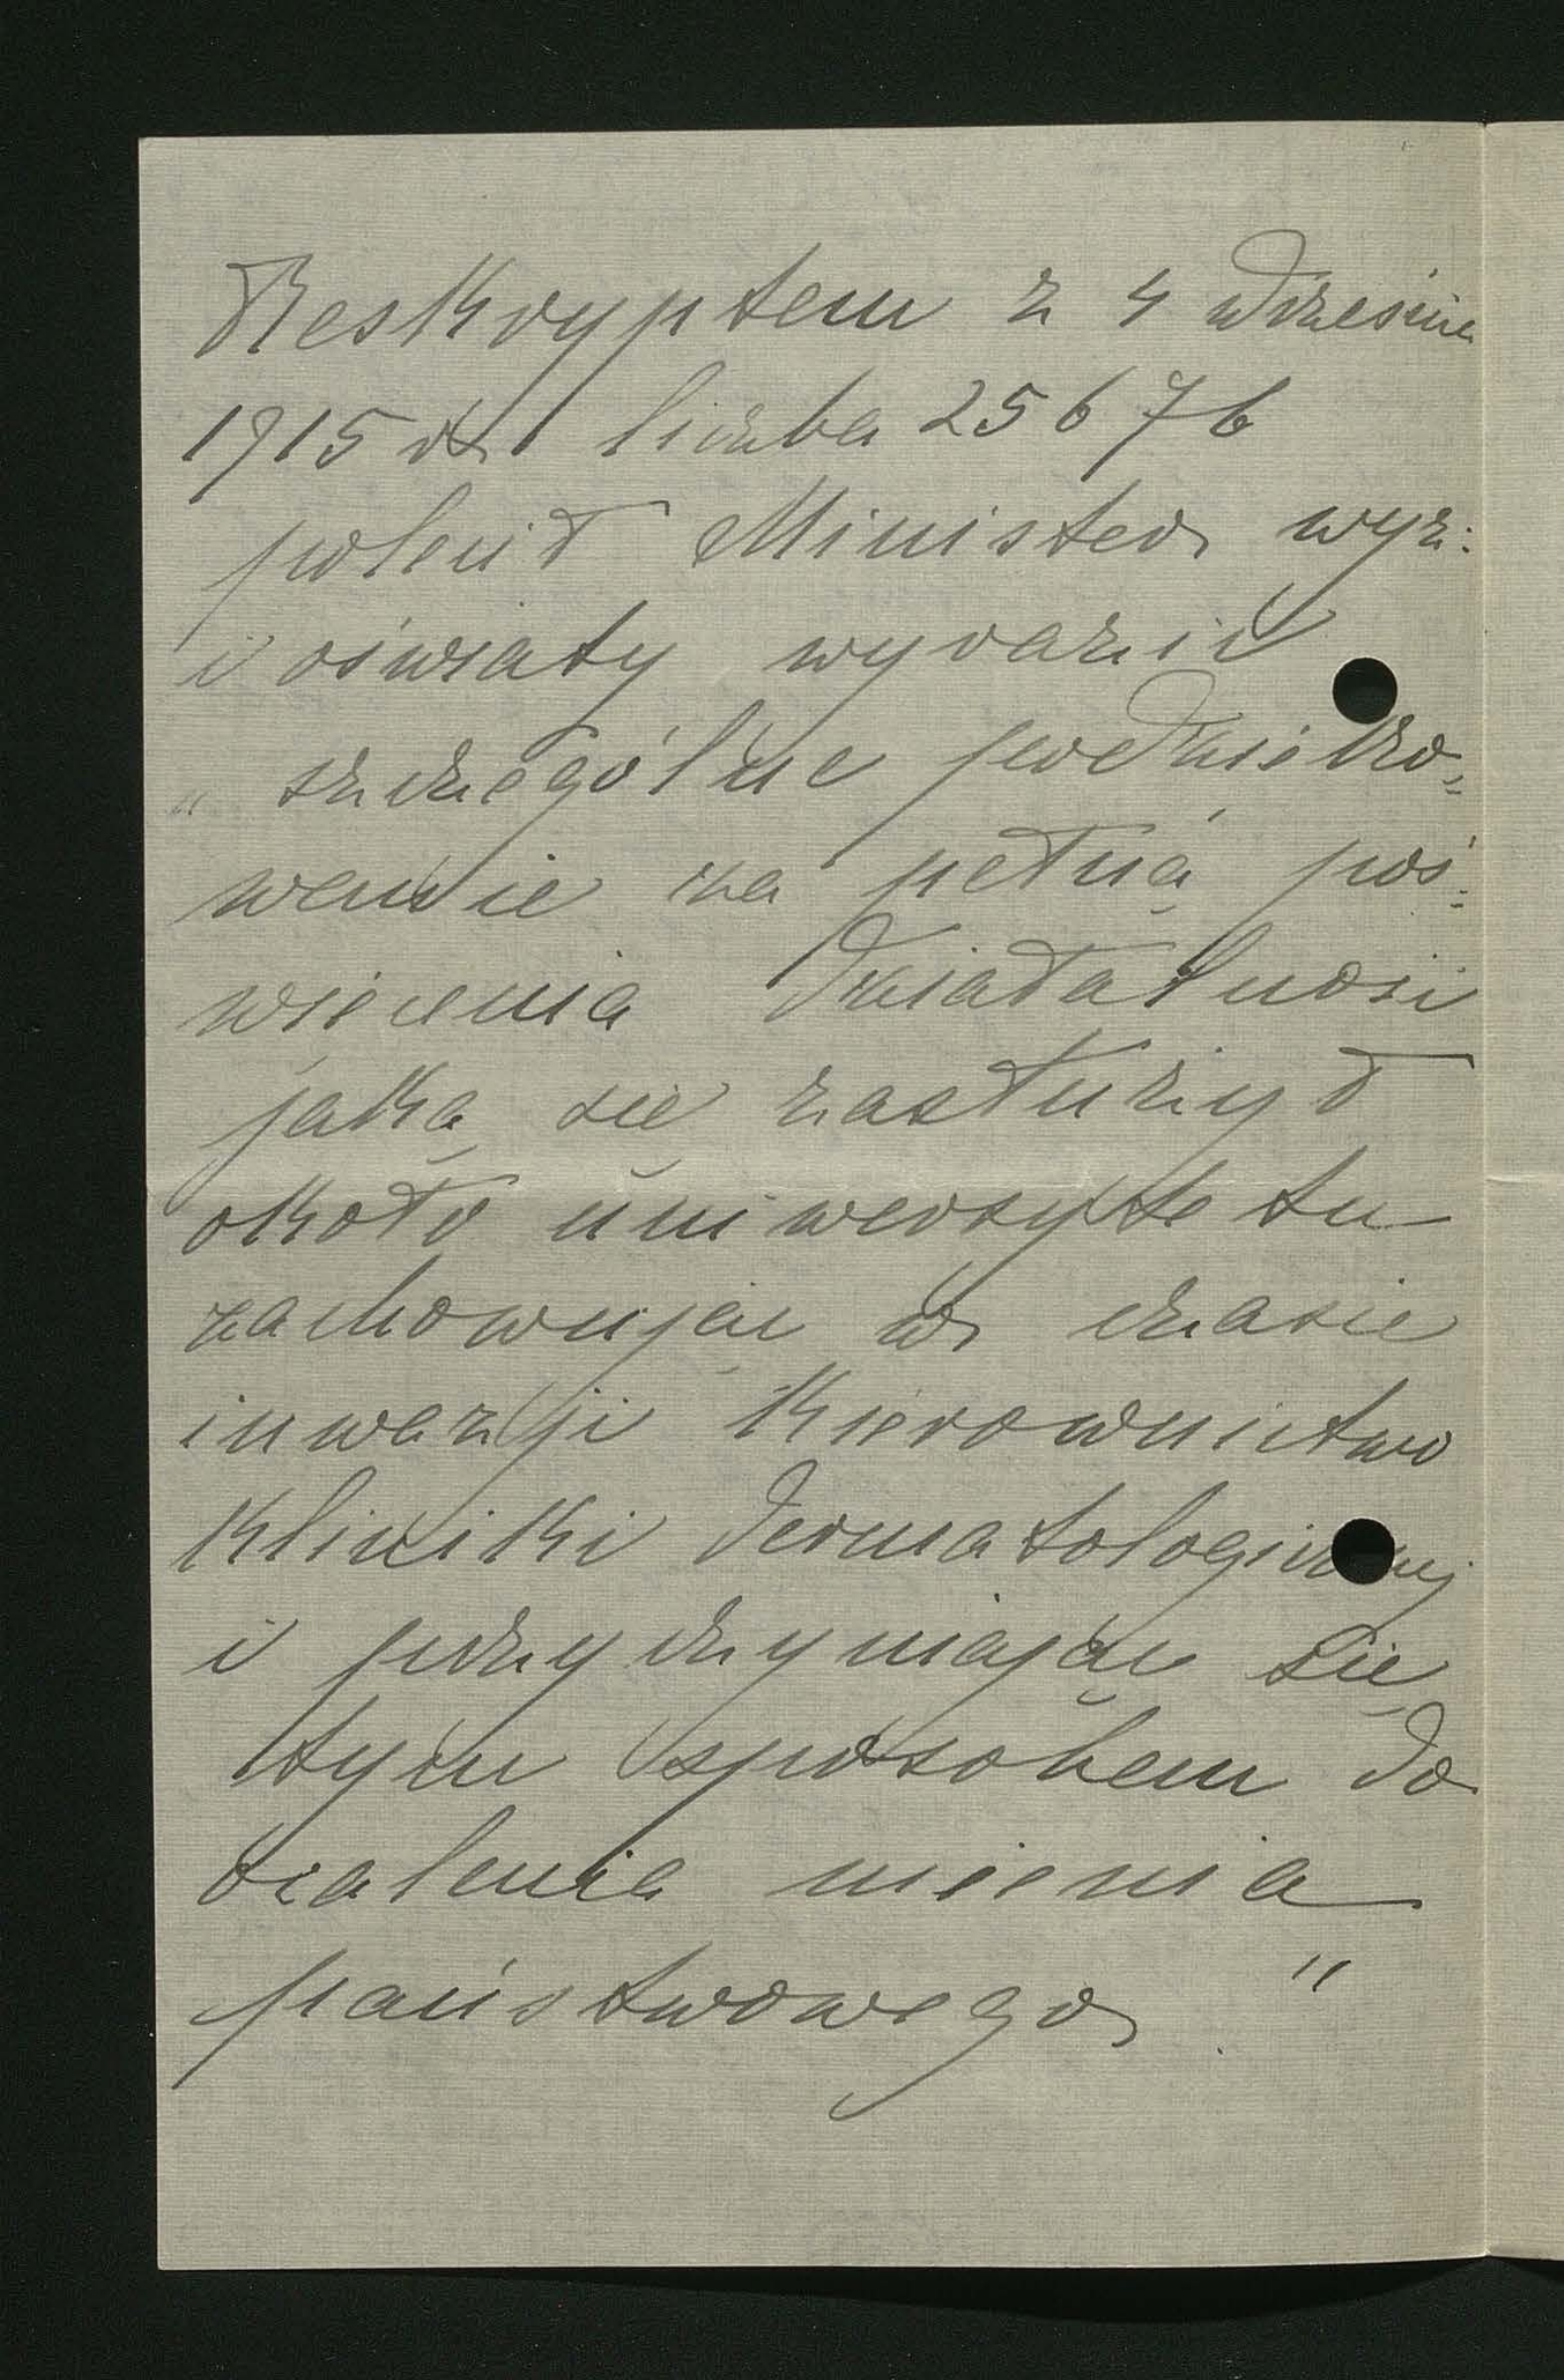 Reskryptem z 4 września
1915 r liczba 25676
polecił Minister wyz.
i oświaty wyrazić
" szczególne podzięko=
wanie za pełną poś=
więcenia działalność
jaką się zasłużył
około uniwersytetu
zachowując w czasie
inwazji kierownictwo
kliniki dermatologicznej
i przyczyniając się
tym sposobem do
ocalenia mienia
państwowego "